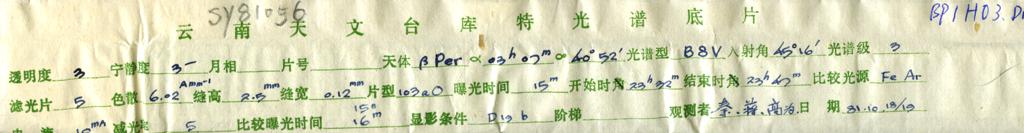 SY81056
BP1H03.D
云南天文台库特光谱底片
透明度 3 宁静度 3- 月相 片号 天体 β Per α 03h 07m δ 40° 52′ 光谱型 B8V 入射角 45°16′ 光谱级 3
滤光片 5 色散 6.02 Amm-1 缝高 2.5mm 缝宽 0.12mm 片型 103aO 曝光时间 15m 开始时刻 23h 32m 结束时刻 23h 47m 比较光源 Fe Ar
mA 减光 5 比较曝光时间 15s 16m 显影条件 D19 b 阶梯 观测者 日期 31.10.